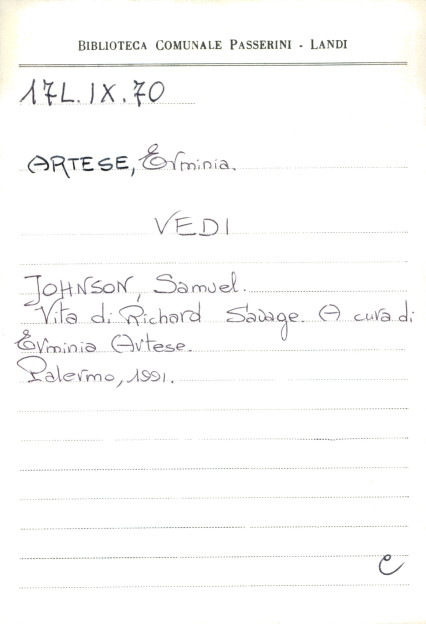 BIBLIOTECA COMUNALE PASSERINI - LANDI
17L.IX.70
ARTESE, Erminia.
VEDI
JOHNSON, Samuel.
Vita di Richard Savage. A cura di
Erminia Artese.
Palermo, 1991.
C